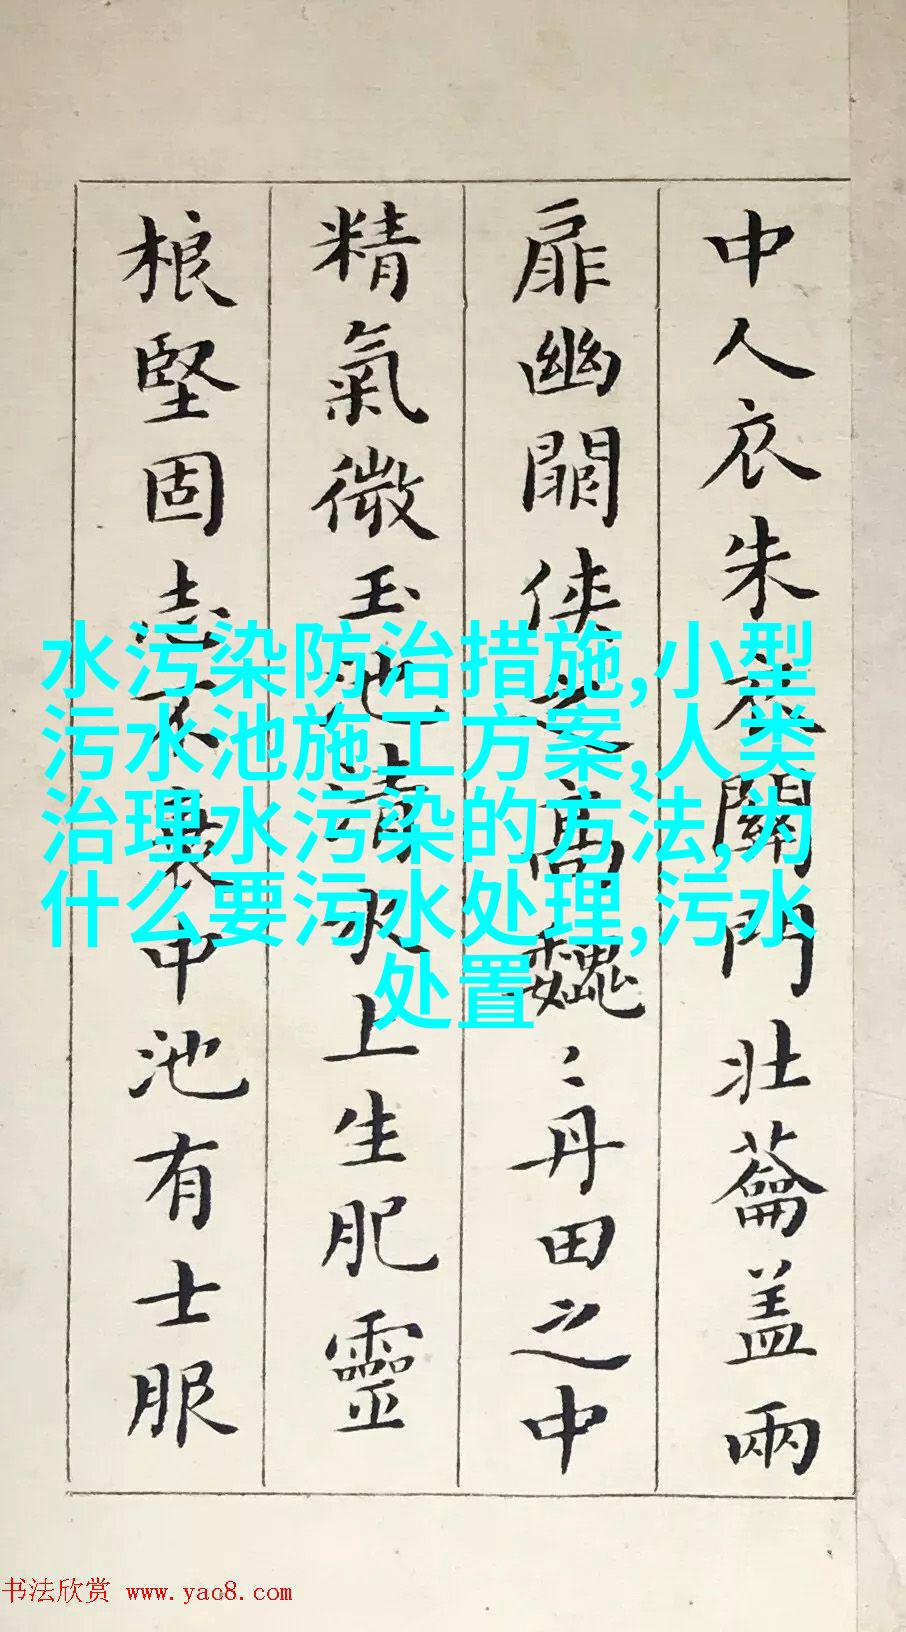 中人衣朱衣關門壯蘥盖兩
扉幽關侠之高巍〻丹田之中
精氣微玉池清水上生肥靈
根堅固志不衰中池有士服
水污染防治措施,小型
污水池施工方案,人类
治理水污染的方法,为
什么要污水处理,污水
处置
书法欣赏 www.yac8.com